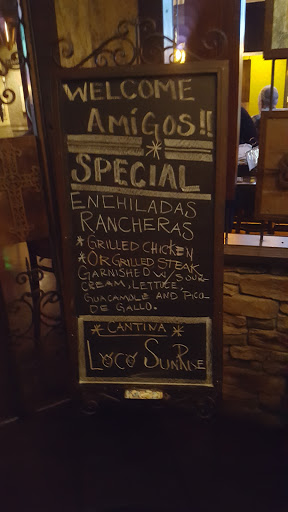 WELCOME
AMiGOS!!
SPECIAL
ENCHILADAS
RANCHERAS
*GRILLED CHICKEN
*OR GRILLED STEAK
GARNISHED W/ SOUR
CREAM, LETTUCE,
GUACAMOLE AND PICO
DE GALLO.
*CANTINA*
LOCO SUNRISE